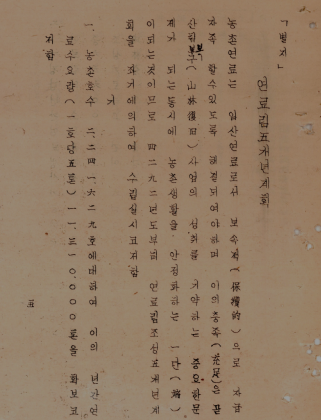 「별지」
연료림五개년계획
농촌연료는 임산연료로서 보속적(保續的)으로 자급
자족 할수있도록 해결되여야하며 이의 충족(充足)은 곧
산림복구(山林復旧)사업의 성취를 기약하는 중요한문
제가 되는동시에 농촌생활을 안정화하는 一단(端)
이되는것이므로 四二九二년도부터 연료림조성五개년계
획을 좌기에의하여 수립실시코저함
거
一. 농촌호수 二.二四一.六二九호에대하여 이의 년간연
료수요량(一호당五톤) 一一.二一0.000톤을 확보코
저함